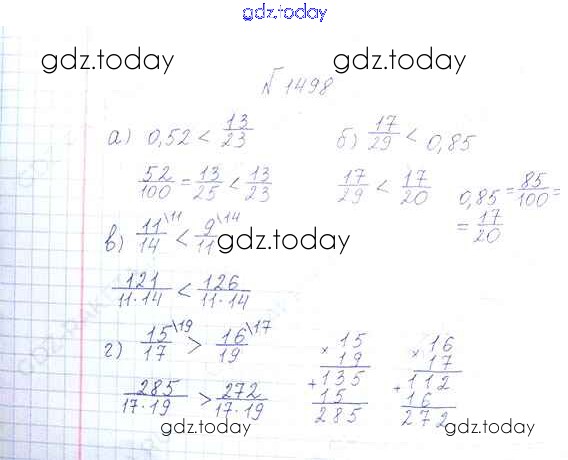 gdz.today
gdz.today gdz.today
№1498
а) 0,52 < 13/23 б) 17/29 < 0,85
52/100 = 13/25 < 13/23 17/29 < 17/20 0,85 = 85/100 =
= 17/20
в) 11\11/14 < 9\14/11 gdz.today
121/11·14 < 126/11·14
г) 15\19/17 > 16\17/19
285/17·19 > 272/17·19
× 15
19
+ 135
15
285
× 16
17
+ 112
16
272
gdz.today gdz.today